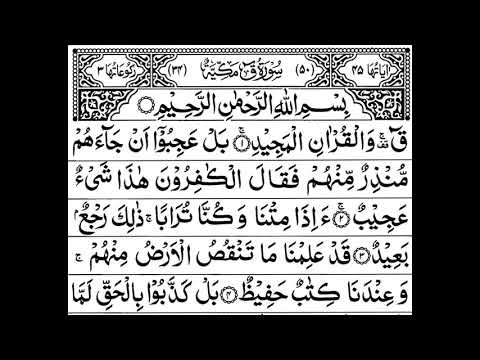 اٰیَاتُهَا ٤٥ (٥٠) سُوْرَةُ قٓ مَكِّیَّةٌ (٣٤) رُكُوْعَاتُهَا ٣
بِسْمِ اللّٰهِ الرَّحْمٰنِ الرَّحِیْمِ
قٓ ۚ وَالْقُرْاٰنِ الْمَجِیْدِ ۚ﴿۱﴾ بَلْ عَجِبُوْۤا اَنْ جَآءَهُمْ
مُّنْذِرٌ مِّنْهُمْ فَقَالَ الْكٰفِرُوْنَ هٰذَا شَیْءٌ
عَجِیْبٌ ۚ﴿۲﴾ ءَاِذَا مِتْنَا وَ كُنَّا تُرَابًا ۚ ذٰلِكَ رَجْعٌۢ
بَعِیْدٌ ﴿۳﴾ قَدْ عَلِمْنَا مَا تَنْقُصُ الْاَرْضُ مِنْهُمْ ۚ
وَ عِنْدَنَا كِتٰبٌ حَفِیْظٌ ﴿۴﴾ بَلْ كَذَّبُوْا بِالْحَقِّ لَمَّا